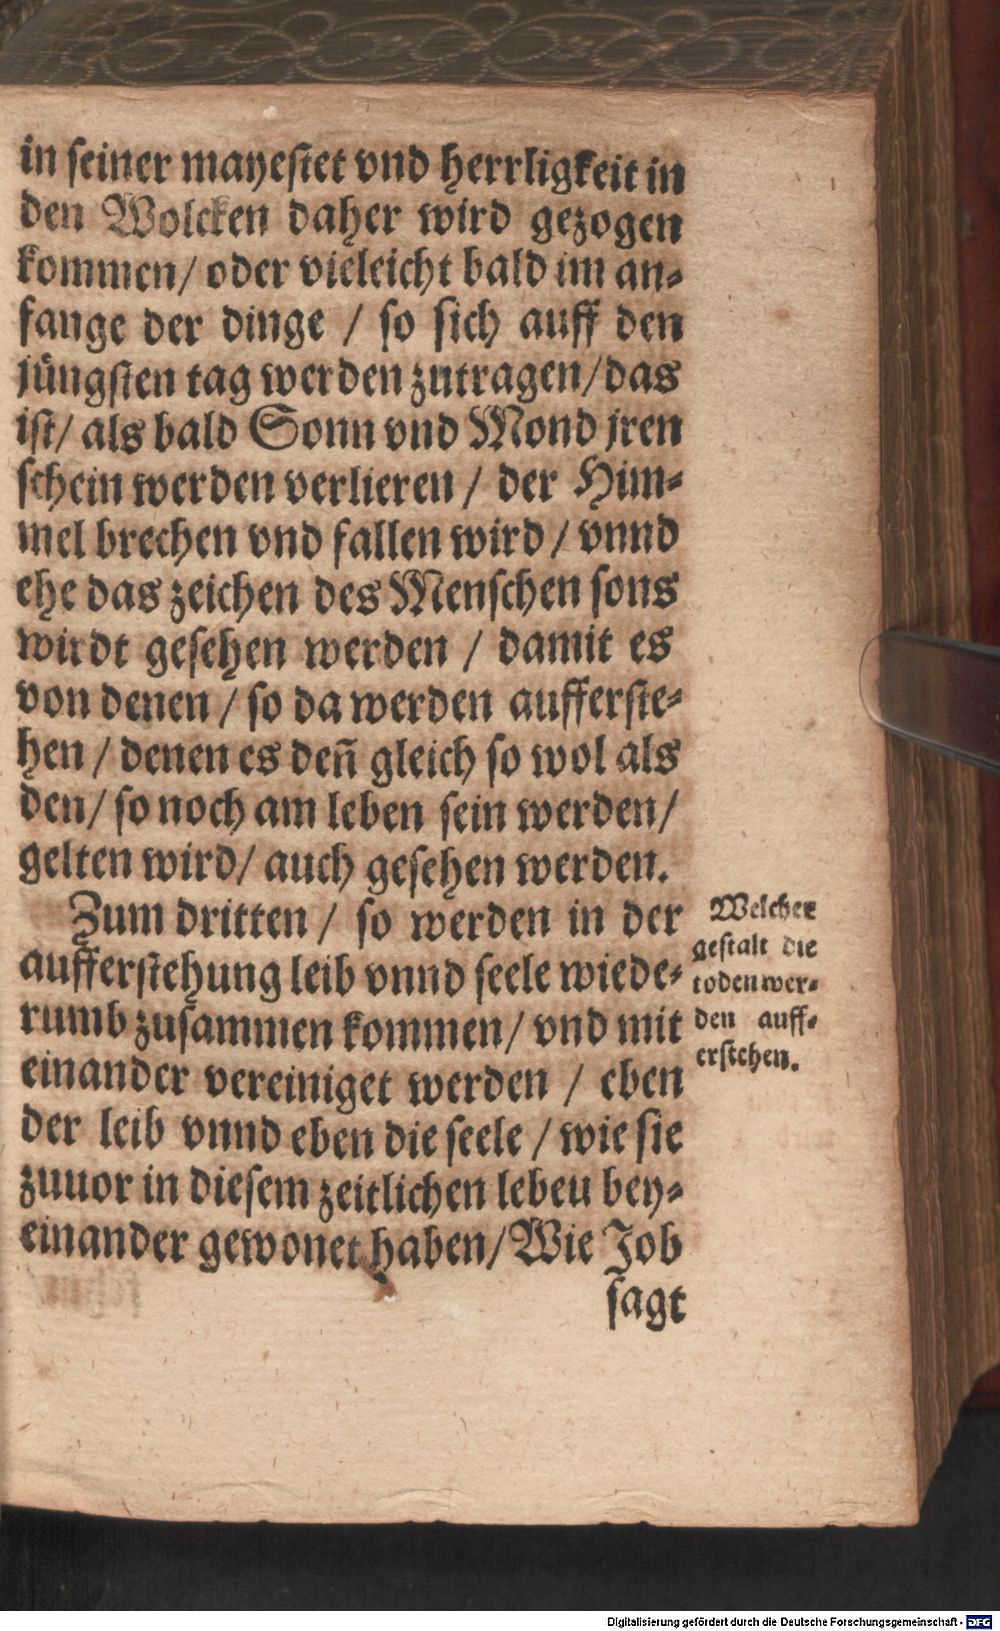 in seiner mayestet vnd herrligkeit in
den Wolcken daher wird gezogen
kommen/ oder vieleicht bald im an-
fange der dinge / so sich auff den
jüngsten tag werden zutragen/das
ist/ als bald Sonn vnd Mond jren
schein werden verlieren / der Him-
mel brechen vnd fallen wird / vnnd
ehe das zeichen des Menschen sons
wirdt gesehen werden / damit es
von denen / so da werden aufferste-
hen / denen es deñ gleich so wol als
den/ so noch am leben sein werden/
gelten wird/ auch gesehen werden.
Zum dritten / so werden in der
aufferstehung leib vnnd seele wiede-
rumb zusammen kommen/ vnd mit
einander vereiniget werden / eben
der leib vnnd eben die seele / wie sie
zuuor in diesem zeitlichen lebeu bey-
einander gewonet haben/ Wie Job
sagt
Welcher
gestalt die
toden wer-
den auff-
erstehen.
Digitalisierung gefördert durch die Deutsche Forschungsgemeinschaft - DFG